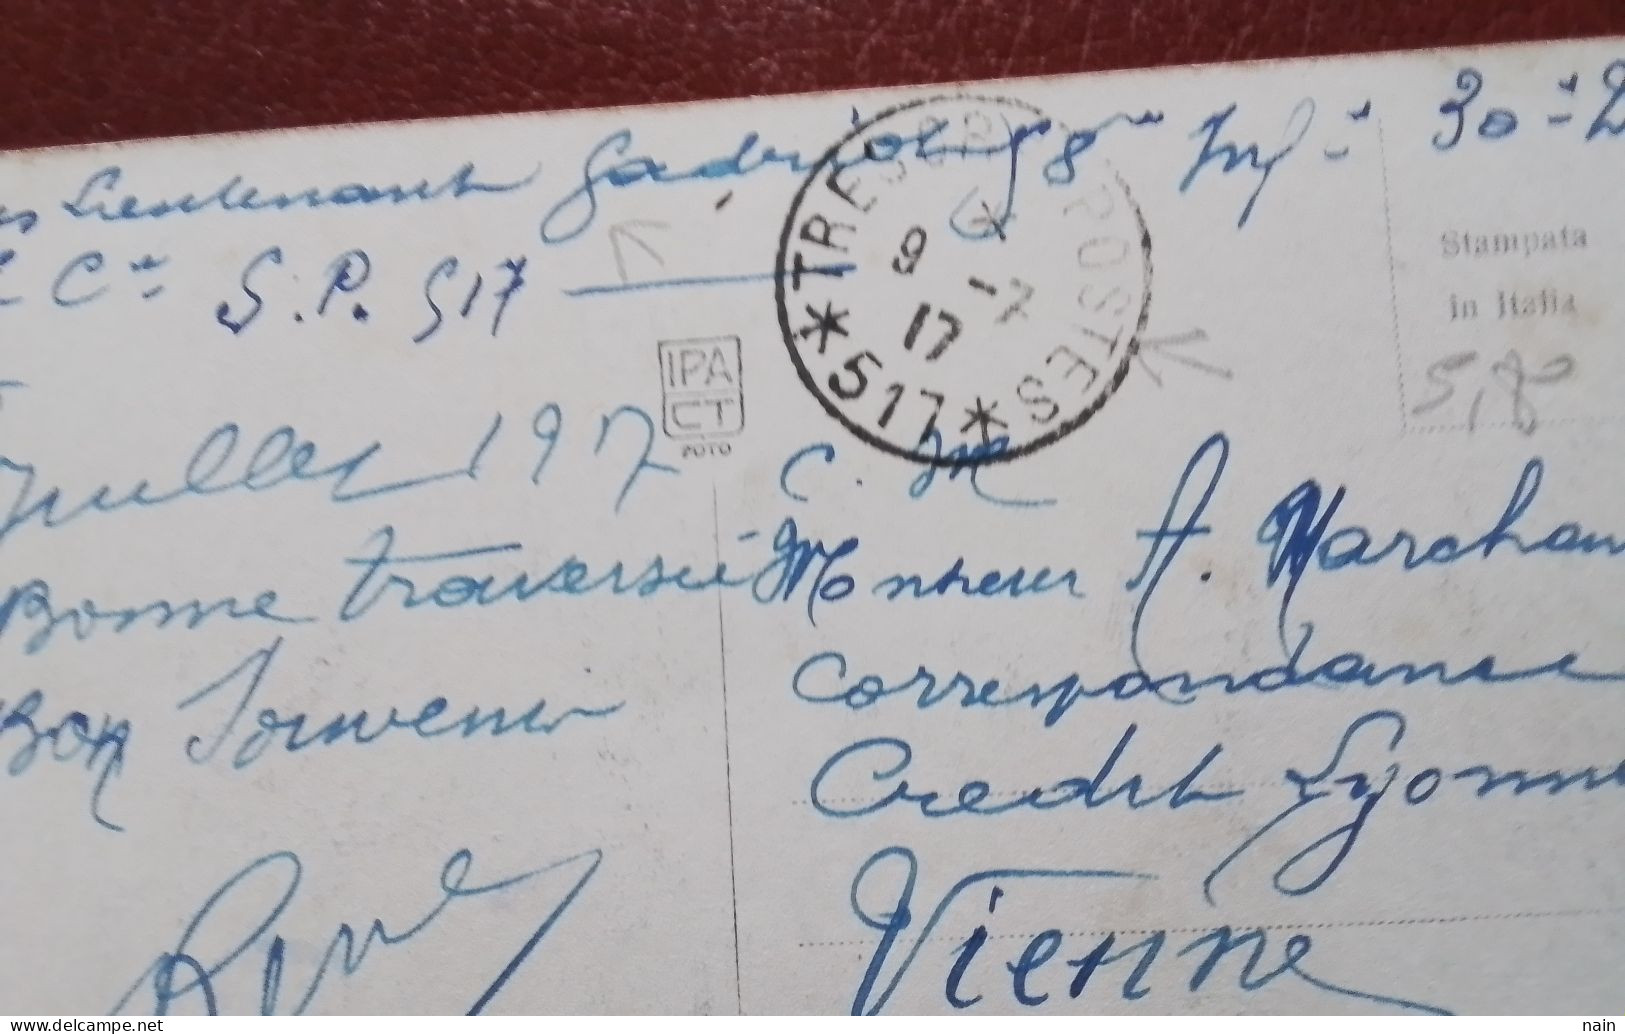 Lieutenant Gadriol 58me Inf.ie 30e D
Cie S.P. 517
TRESOR POSTES
9 -7
17
*517*
Stampata
in Italia
5,80
IPA
CT
FOTO
Juillet 1917
Bonne traversée
Bon Souvenir
C. M
Monsieur A. Marchan
Correspondance
Credit Lyonn
Vienne
nain
© delcampe.net